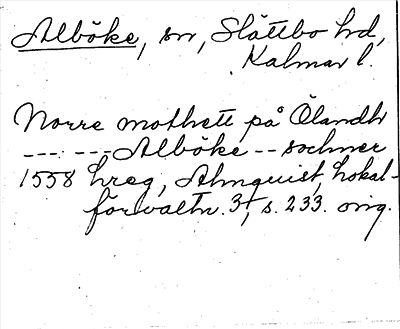 Alböke, sn, Slättbo hd,
Kalmar l.
Norre mothett på Ölandh
--- --- Alböke -- sochner
1558 hreg, Almquist, Lokal-
förvaltn. 3, s. 233. orig.